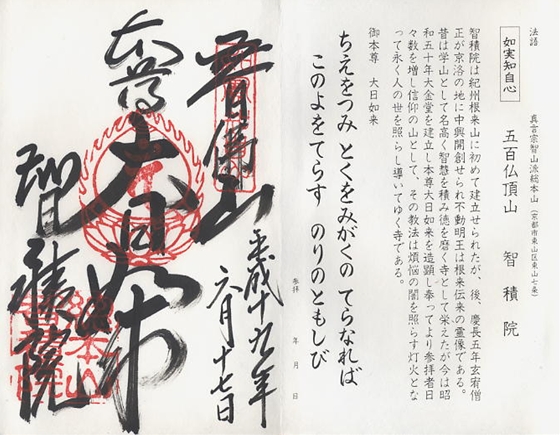 法語
如実知自心
真言宗智山派総本山(京都市東山区東山七条)
五百仏頂山 智積院
智積院は紀州根来山に初めて建立せられたが、後、慶長五年玄宥僧
正が京洛の地に中興開創せられ不動明王は根来伝来の霊像である。
昔は学山として名高く智慧を積み徳を磨く寺として栄えたが今は昭
和五十年大金堂を建立し本尊大日如来を造顕し奉ってより参拝者日
々数を増し信仰の山として、その教法は煩悩の闇を照らす灯火とな
って永く人の世を照らし導いてゆく寺である。
御本尊 大日如来
ちえをつみ とくをみがくの てらなれば
このよをてらす のりのともしび
参拝 年 月 日
平成十九年
六月十七日
百佛山
本尊
大日如来
智積院